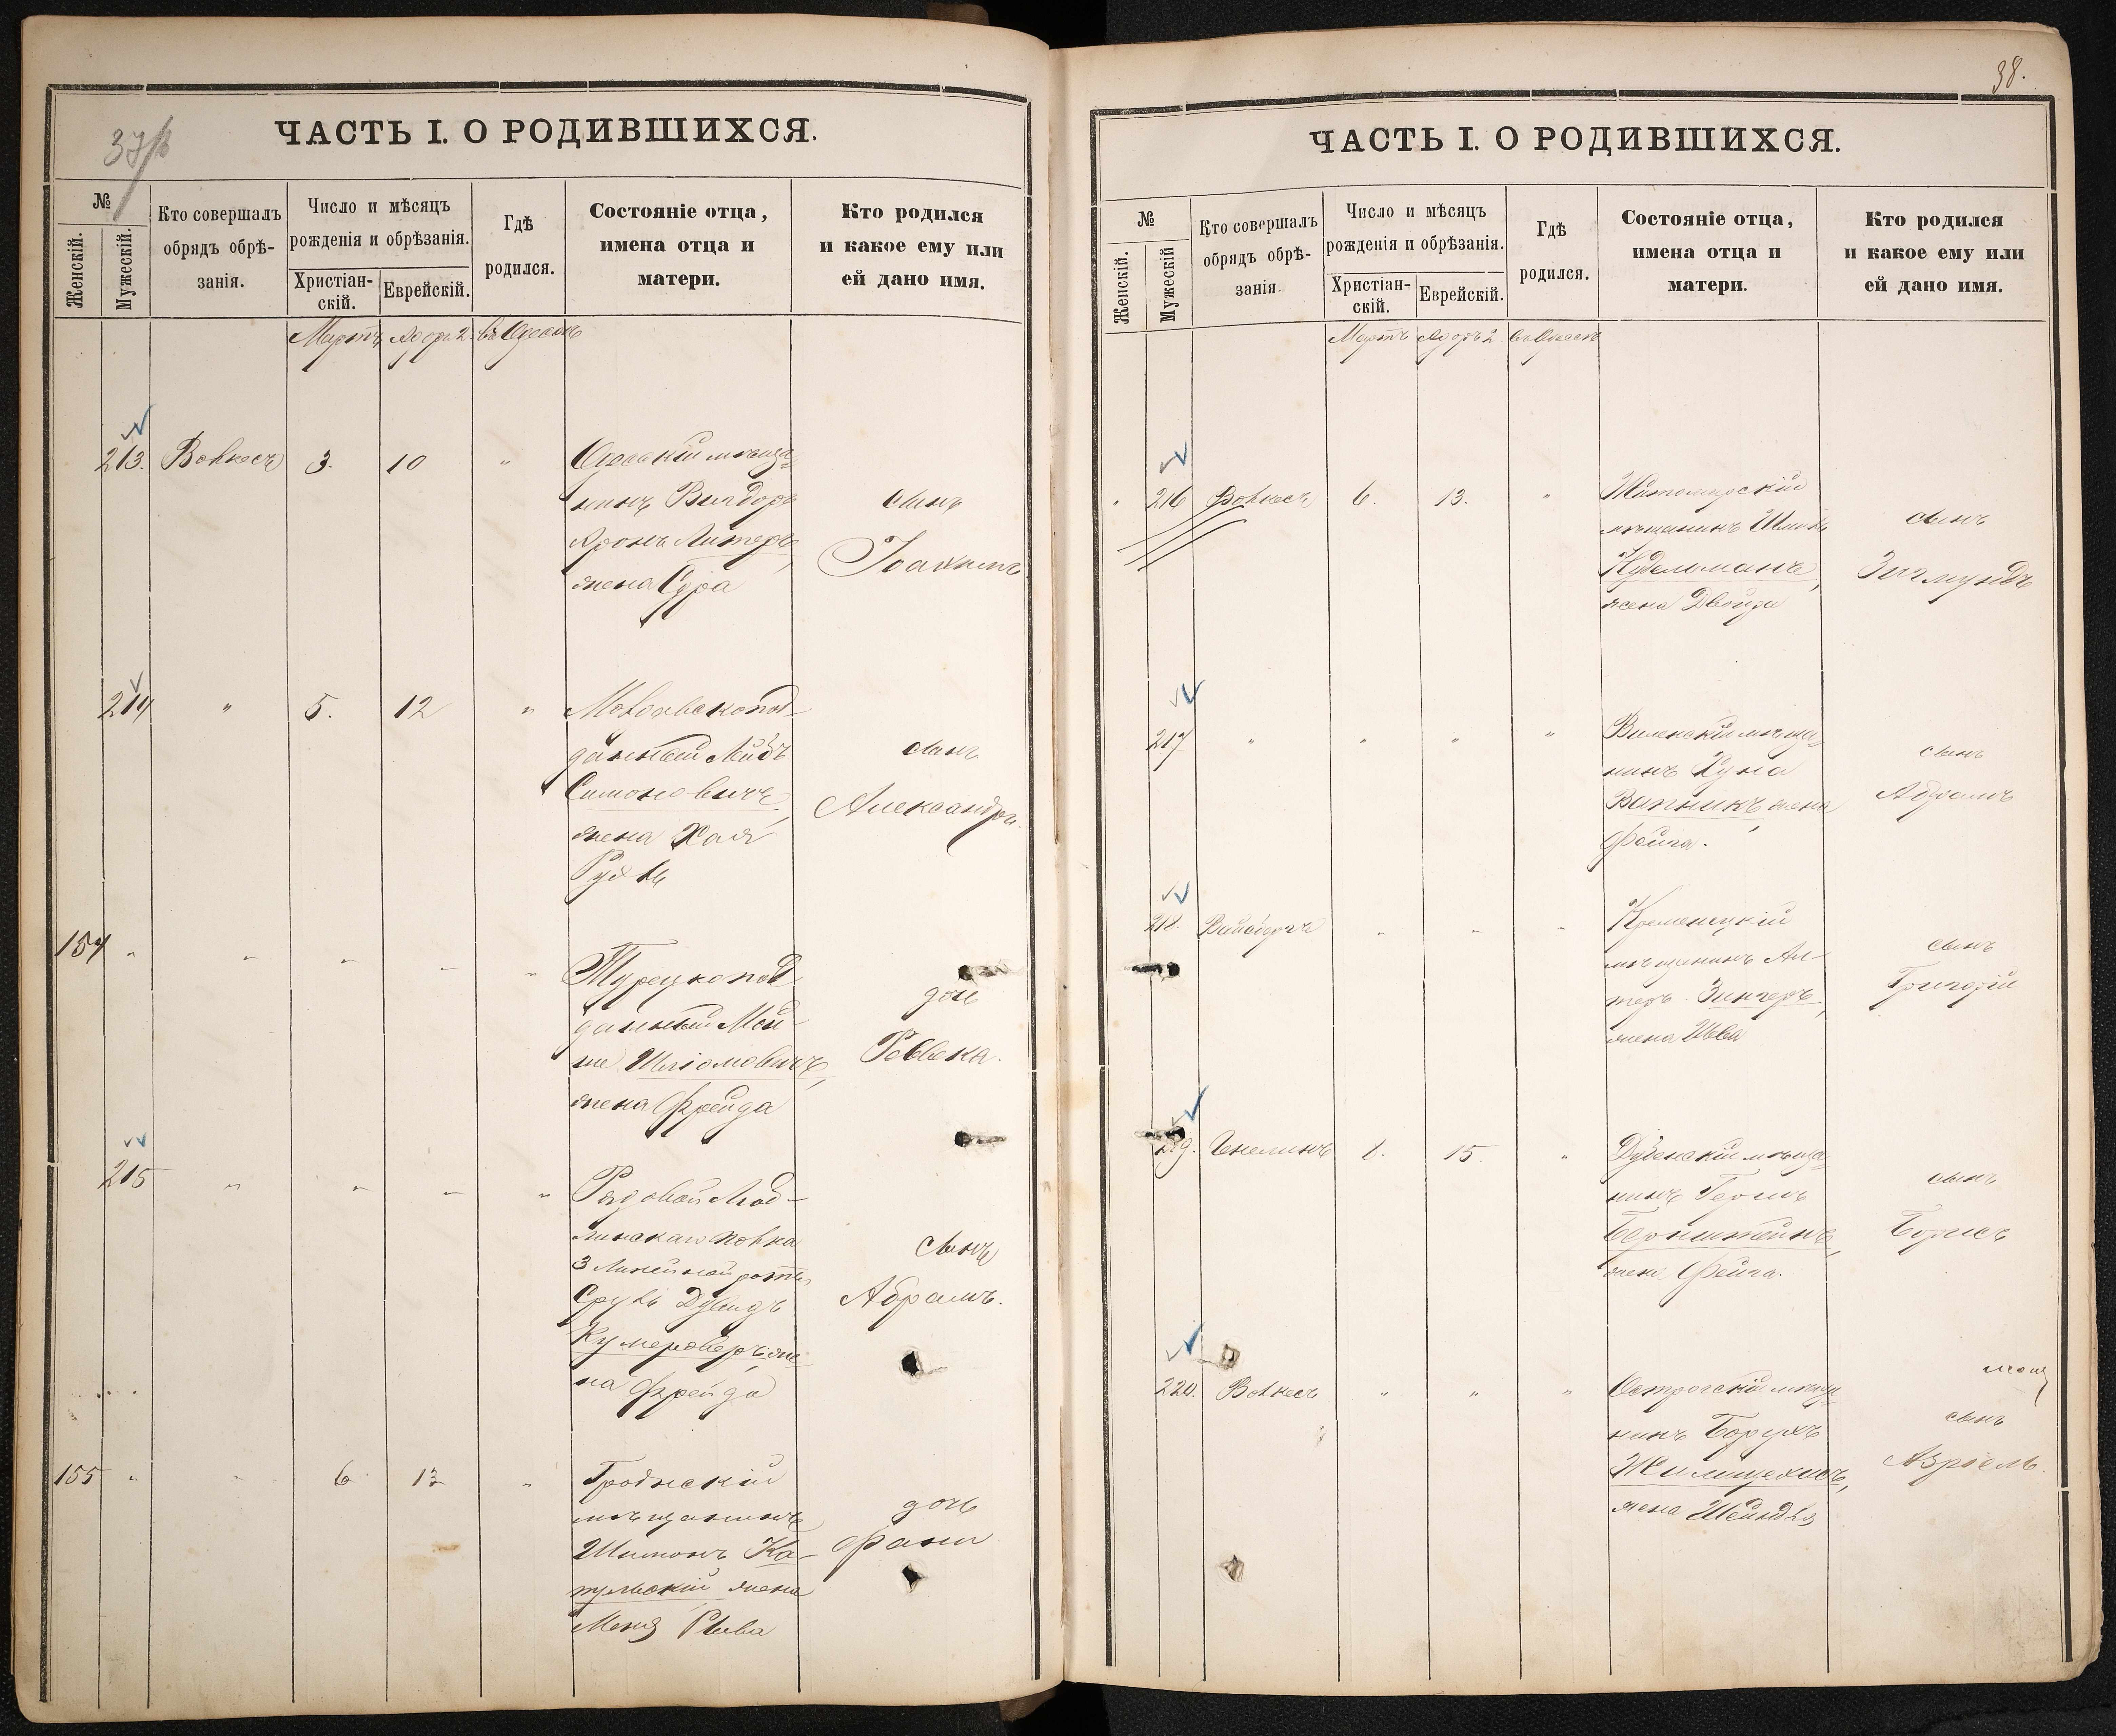 37/
ЧАСТЬ I. О РОДИВШИХСЯ.
№
Женскій.
Мужескій.
Кто совершалъ
обрядъ обрѣ-
занія.
Число и мѣсяцъ
рожденія и обрѣзанія.
Христіан-
скій.
Еврейскій.
Гдѣ
родился.
Состояніе отца,
имена отца и
матери.
Кто родился
и какое ему или
ей дано имя.
Мартъ Адаръ 2 въ Одессѣ
213. Волкесъ 3. 10 "
Одесскій мѣща-
нинъ Вигдоръ
Аронъ Литеръ,
жена Сура
сынъ
Іоахимъ
214 " 5. 12 "
Молдавскопод-
данный Лейбъ
Симоновичъ,
жена Хая
Рухль
сынъ
Александръ.
154 " " " " "
Турецкопод-
данный Мой-
ше Шліомовичъ,
жена Фрейда
дочь
Ревека.
215 " " " "
Рядовой Мод-
линскаго полка
3 Линейной роты
Сруль Дувидъ
Кумероверъ, же
на Фрейда
сынъ
Абрамъ.
155 " " 6 13 "
Гродненскій
мѣщанинъ
Шимонъ Ка-
тульскій жена
Меня Рыва
дочь
Фани
38.
ЧАСТЬ I. О РОДИВШИХСЯ.
№
Женскій.
Мужескій
Кто совершалъ
обрядъ обрѣ-
занія.
Число и мѣсяцъ
рожденія и обрѣзанія.
Христіан-
скій.
Еврейскій.
Гдѣ
родился.
Состояніе отца,
имена отца и
матери.
Кто родился
и какое ему или
ей дано имя.
Мартъ Адаръ 2. въ Одессѣ
216 Волкесъ 6. 13. "
Житомирскій
мѣщанинъ Шмиль
Кудельманъ,
жена Двойра
сынъ
Зигмундъ
217 " " " "
Виленскій мѣща-
нинъ Хуна
Вапникъ, жена
Фейга.
сынъ
Абрамъ
218. Вайсбергъ " " "
Кременецкій
мѣщанинъ Ал-
теръ Зингеръ,
жена Шева
сынъ
Григорій
219. 8. 15. "
Дубенскій мѣща-
нинъ Гершъ
Бернштейнъ,
жена Фейга.
сынъ
Борисъ
220. Волкесъ " " "
Острогскій мѣща-
нинъ Борухъ
жена Шейндля
сынъ
Азріель.